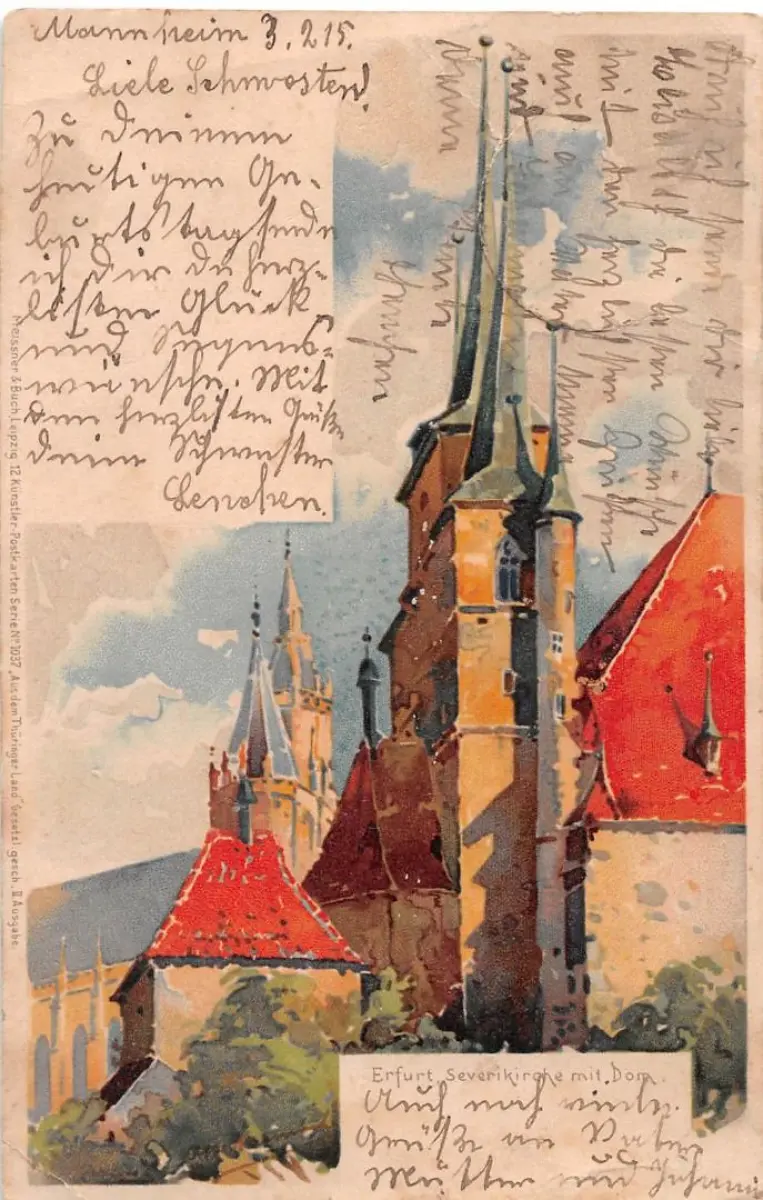 Mannheim 3.2.15.
Liebe Schwester!
Zu Deinem
heutigen Ge-
burtstag sende
ich Dir die herz-
lichsten Glück
und Segens-
wünsche. Mit
den herzlichsten Grüße
Deine Schwester
Lenchen.
Auch ich sende dir liebe
die besten Wünsche
mit den herzlichsten Grüßen
auch an
Meissner & Buch, Leipzig 12 Künstler-Postkarten Serie No 1037 „Aus dem Thüringer Land" Gesetzl. gesch. II Ausgabe.
Erfurt, Severikirche mit Dom.
Auch noch viele
Grüße an Vater
Mutter und